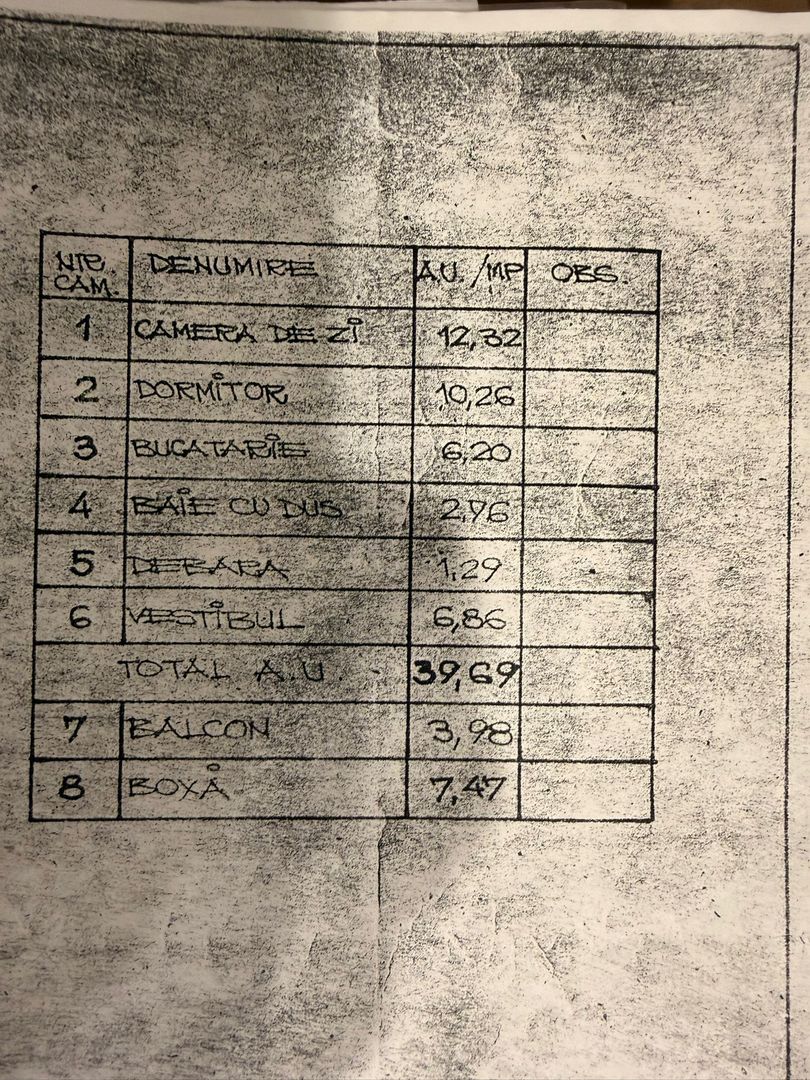 NR. CAM. DENUMIRE A.U. /MP OBS.
1 CAMERA DE ZI 12,32
2 DORMITOR 10,26
3 BUCATARIE 6,20
4 BAIE CU DUS 2,76
5 DEBARA 1,29
6 VESTIBUL 6,86
TOTAL A.U. 39,69
7 BALCON 3,98
8 BOXĂ 7,47